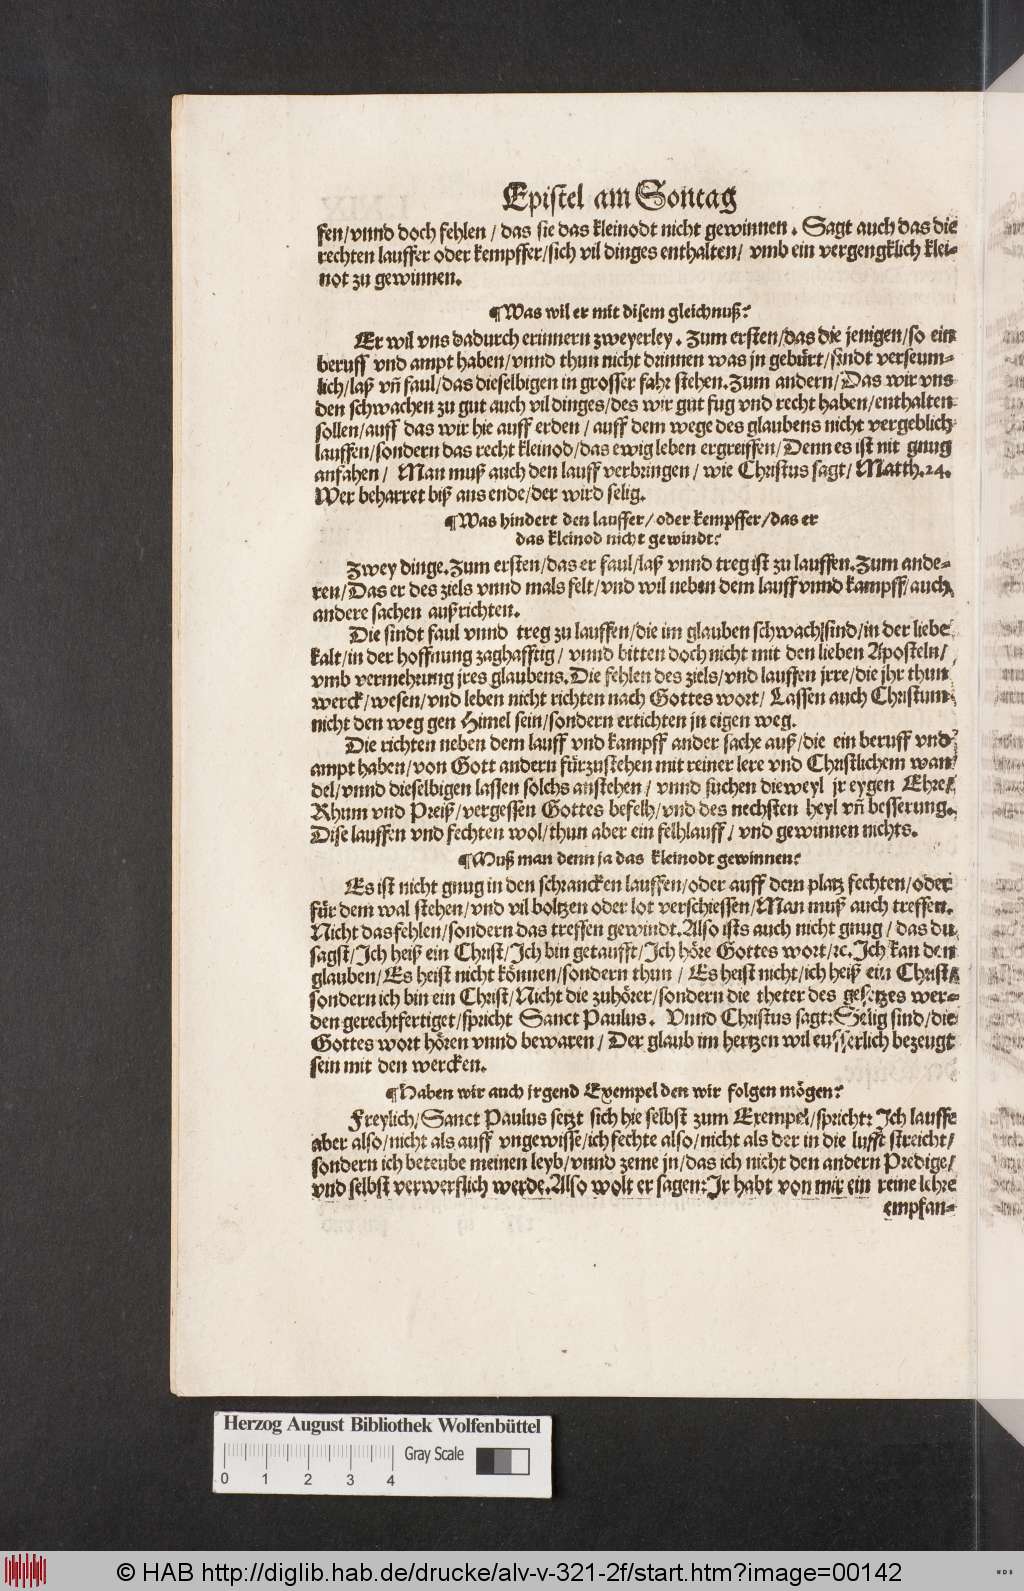 Epistel am Sontag
fen/vnnd doch fehlen / das sie das kleinodt nicht gewinnen. Sagt auch das die
rechten lauffer oder kempffer/sich vil dinges enthalten/ vmb ein vergengklich klei-
not zu gewinnen.
¶Was wil er mit disem gleichnuß?
Er wil vns dadurch erinnern zweyerley. Zum ersten/das die jenigen/so ein
beruff vnd ampt haben/vnnd thun nicht drinnen was jn gebürt/sindt verseum-
lich/laß vñ faul/das dieselbigen in grosser fahr stehen. Zum andern/Das wir vns
den schwachen zu gut auch vil dinges/des wir gut fug vnd recht haben/enthalten
sollen/auff das wir hie auff erden / auff dem wege des glaubens nicht vergeblich
lauffen/sondern das recht kleinod/das ewig leben ergreiffen/Denn es ist nit gnug
anfahen / Man muß auch den lauff verbringen / wie Christus sagt/Matth.24.
Wer beharret biß ans ende/der wird selig.
¶Was hindert den lauffer/ oder kempffer/das er
das kleinod nicht gewindt?
Zwey dinge. Zum ersten/das er faul/laß vnnd treg ist zu lauffen. Zum ande-
ren/Das er des ziels vnnd mals felt/vnd wil neben dem lauff vnnd kampff/auch
andere sachen außrichten.
Die sindt faul vnnd treg zu lauffen/die im glauben schwach sind/in der liebe
kalt/in der hoffnung zaghafftig/ vnnd bitten doch nicht mit den lieben Aposteln/
vmb vermehrung jres glaubens. Die fehlen des ziels/vnd lauffen jrre/die jhr thun
werck/wesen/vnd leben nicht richten nach Gottes wort/ Lassen auch Christum
nicht den weg gen Himel sein/sondern ertichten jn eigen weg.
Die richten neben dem lauff vnd kampff ander sache auß/die ein beruff vnd
ampt haben/von Gott andern fürzustehen mit reiner lere vnd Christlichem wan
del/vnnd dieselbigen lassen solchs anstehen / vnnd suchen dieweyl jr eygen Ehre/
Rhum vnd Preiß/vergessen Gottes befelh/vnd des nechsten heyl vñ besserung.
Dise lauffen vnd fechten wol/thun aber ein felhlauff / vnd gewinnen nichts.
¶Muß man denn ja das kleinodt gewinnen?
Es ist nicht gnug in den schrancken lauffen/oder auff dem platz fechten/oder
für dem wal stehen/vnd vil boltzen oder lot verschiessen/Man muß auch treffen.
Nicht das fehlen/sondern das treffen gewindt. Also ists auch nicht gnug / das du
sagst/Ich heiß ein Christ/Ich bin getaufft/Ich höre Gottes wort/ꝛc. Ich kan den
glauben/Es heist nicht können/sondern thun / Es heist nicht/ich heiß ein Christ/
sondern ich bin ein Christ/Nicht die zuhörer/sondern die theter des gesetzes wer-
den gerechtfertiget/spricht Sanct Paulus. Vnnd Christus sagt: Selig sind/die
Gottes wort hören vnnd bewaren / Der glaub im hertzen wil eusserlich bezeugt
sein mit den wercken.
¶Haben wir auch jrgend Exempel den wir folgen mögen?
Freylich/Sanct Paulus setzt sich hie selbst zum Exempel/spricht: Ich lauffe
aber also/nicht als auff vngewisse/ich fechte also/nicht als der in die lufft streicht/
sondern ich beteube meinen leyb/vnnd zeme jn/das ich nicht den andern Predige/
vnd selbst verwerflich werde. Also wolt er sagen: Jr habt von mir ein reine lehre
empfan-
Herzog August Bibliothek Wolfenbüttel
Gray Scale
0 1 2 3 4
© HAB http://diglib.hab.de/drucke/alv-v-321-2f/start.htm?image=00142